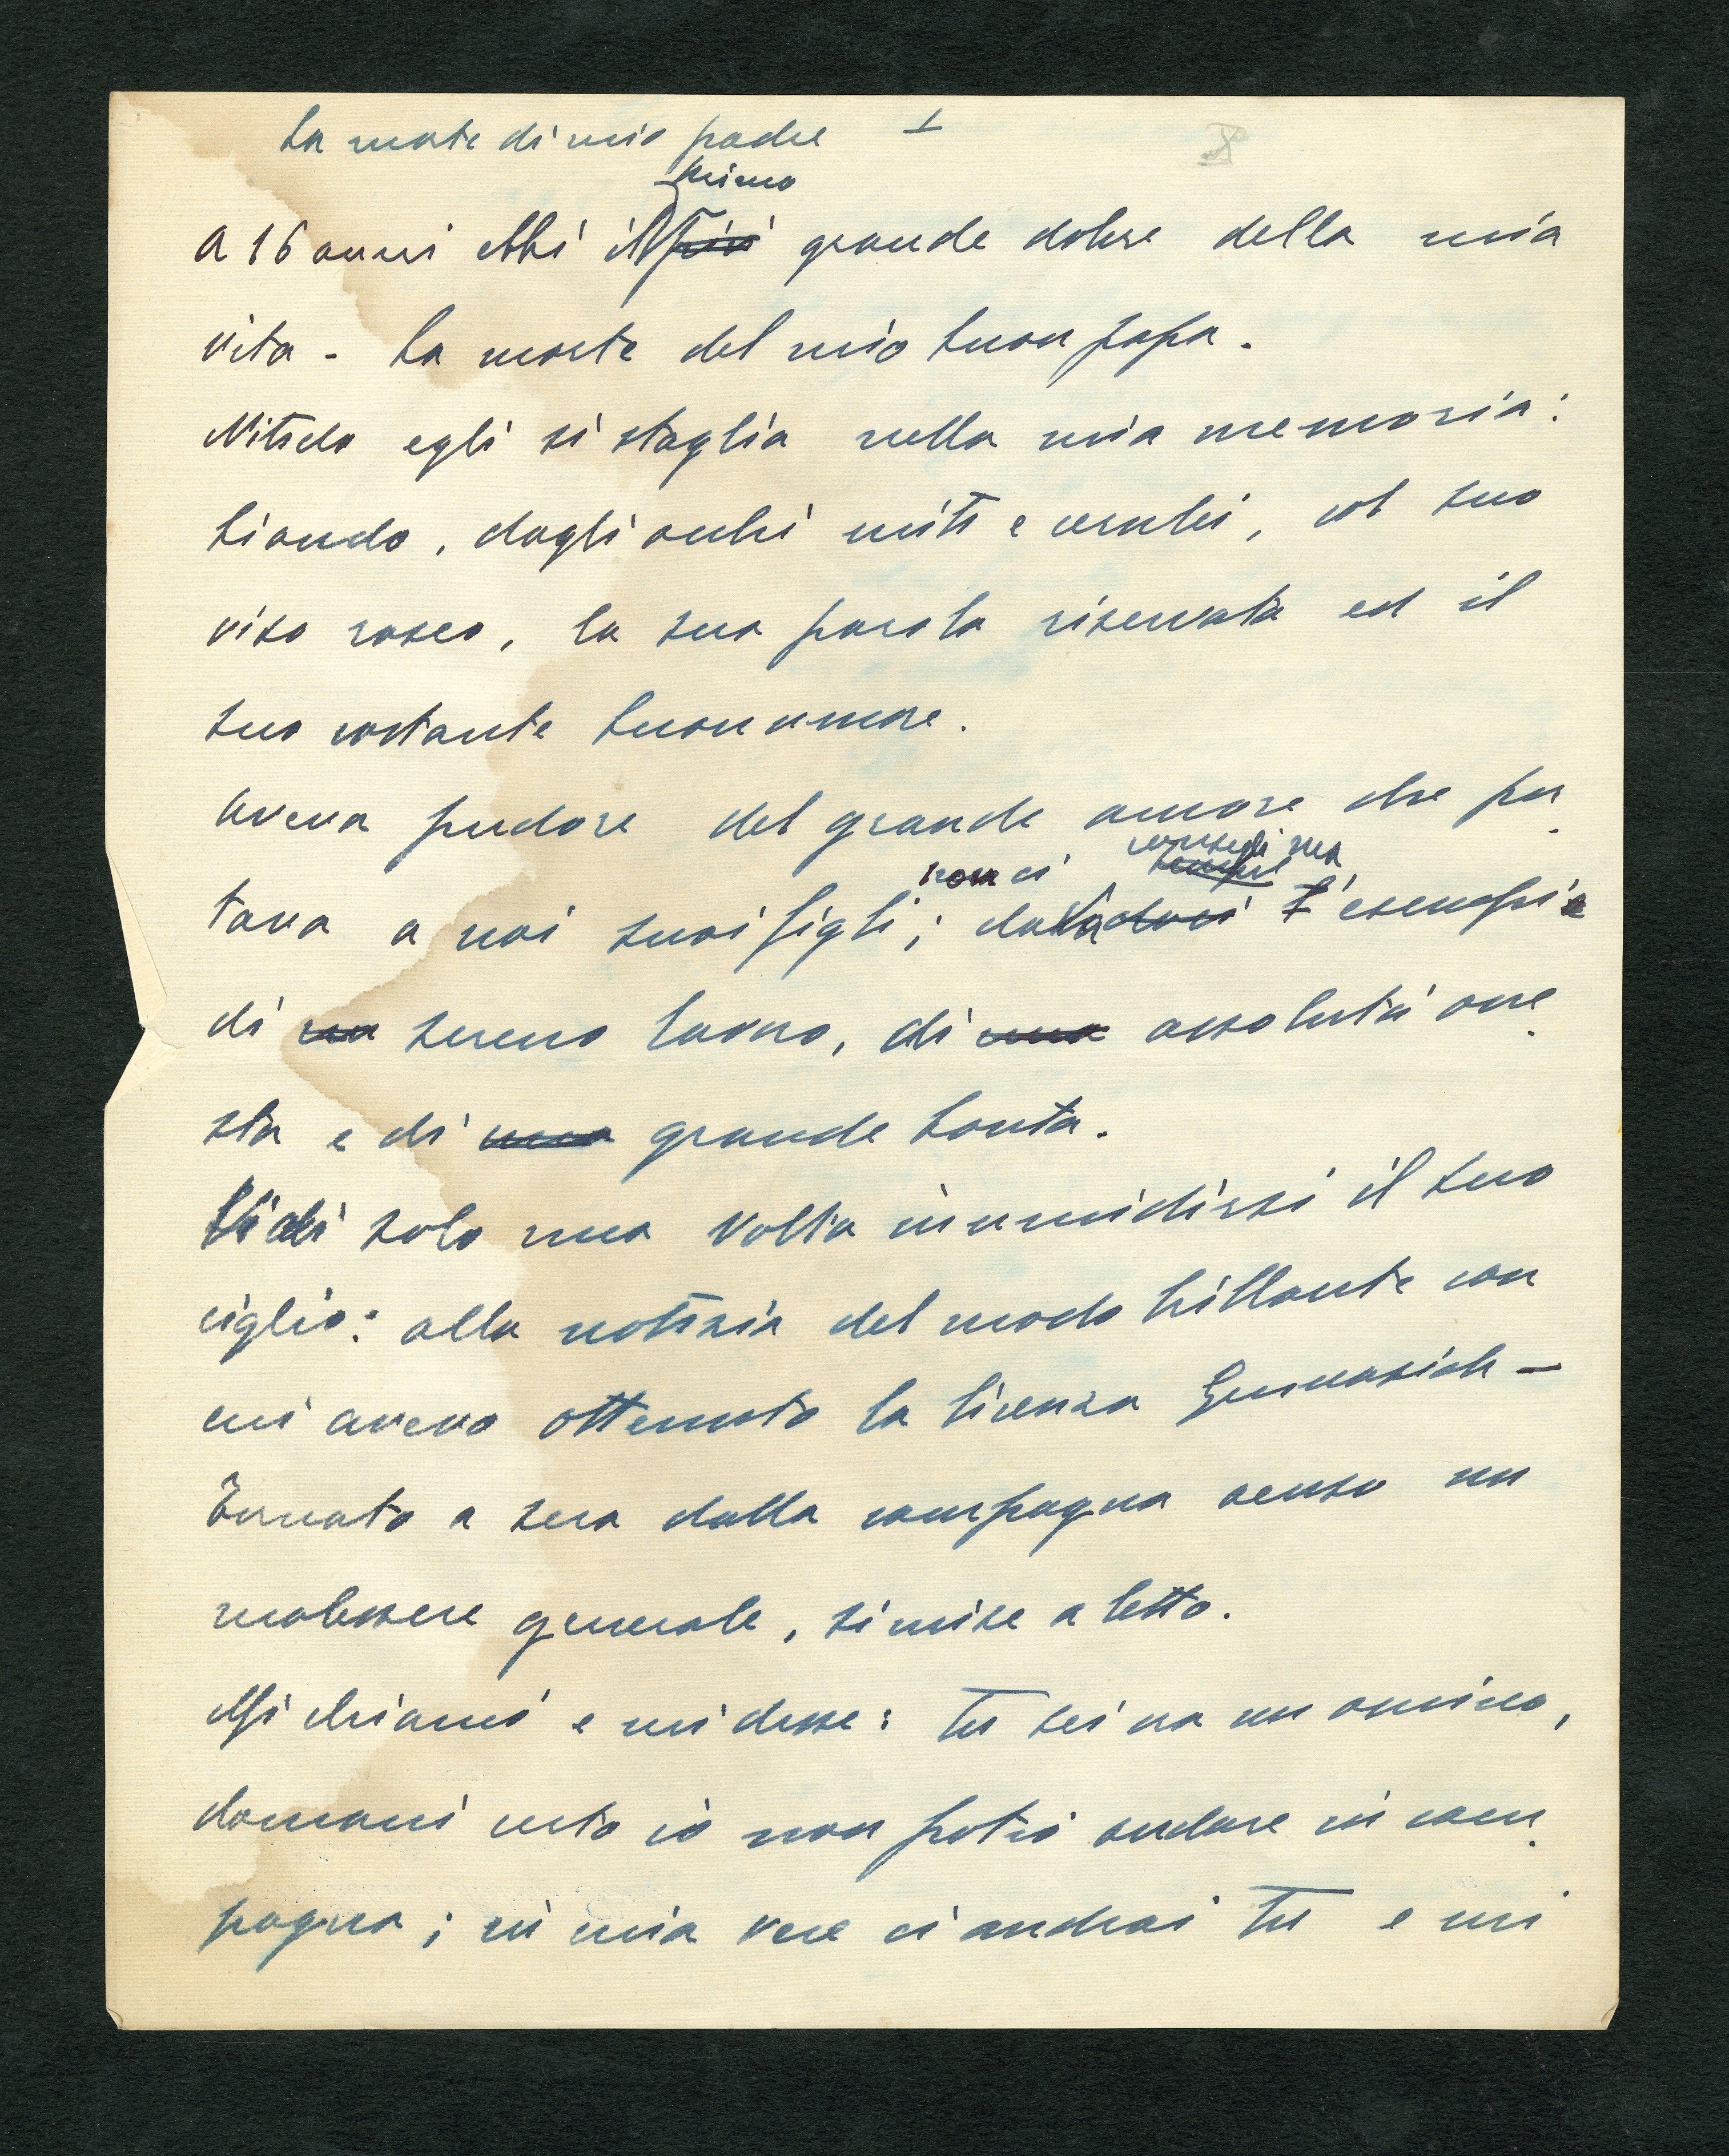 La morte di mio padre I
X
primo
A 16 anni ebbi il più grande dolore della mia
vita - La morte del mio buon papa.
Nitido egli si staglia nella mia memoria:
biondo, dagli occhi miti e cerulei, col suo
viso roseo, la sua parola riservata ed il
suo costante buonumore.
Aveva pudore del grande amore che por
consigli ma
non ci sempre
tava a noi suoi figli; dava doci l'esempio
di un sereno lavoro, di una assoluta one
sta e di una grande bonta.
Vidi solo una volta inumidirsi il suo
ciglio: alla notizia del modo brillante con
cui avevo ottenuto la licenza Ginnasiale -
Tornato a sera dalla campagna accuso un
malessere generale, si mise a letto.
Mi chiamò e mi disse: Tu sei ora un omino,
domani certo io non potrò andare in cam
pagna; in mia vece ci andrai tu e mi